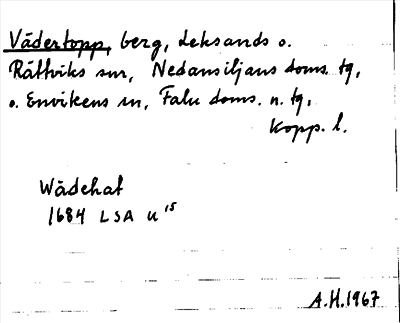 Vädertopp, berg, Leksands o.
Rättviks snr, Nedansiljans doms. tg,
o. Envikens sn, Falu doms. n. tg,
Kopp. l.
Wädehat
1684 LSA U 15
A.H.1967